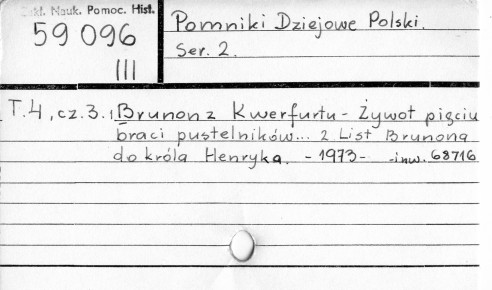 Zakł. Nauk. Pomoc. Hist.
59 096
III
Pomniki Dziejowe Polski.
Ser. 2.
T.4, cz.3. 1. Brunon z Kwerfurtu - Żywot pięciu
braci pustelników... 2. List Brunona
do króla Henryka. - 1973 - - inw. 68716